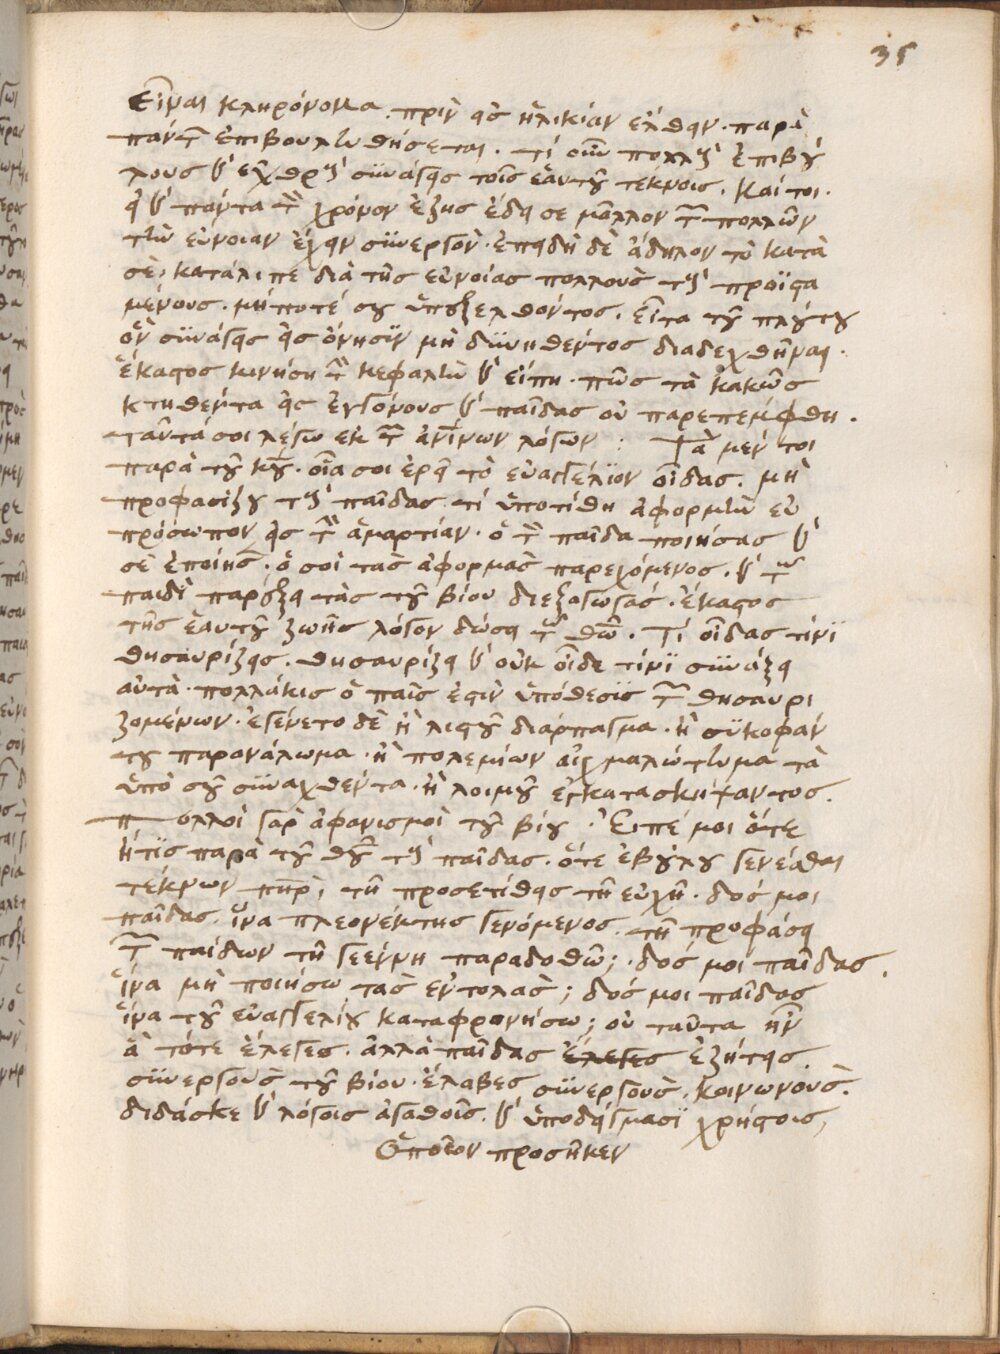 35
εἶναι κληρόνομα. πρὶν εἰς ἡλικίαν ἐλθεῖν. παρὰ
πάντων ἐπιβουλευθήσεται. τί οὖν πολλοὺς ἐπιβού
λους καὶ ἐχθροὺς συνάγεις τοῖς ἑαυτοῦ τέκνοις. Καί τοι.
εἰ καὶ πάντα τὸν χρόνον ἔζης ἔδει σε μᾶλλον τῶν πολλῶν
τὴν εὔνοιαν ἔχειν συνεργόν. ἐπειδὴ δὲ ἄδηλον τὸ κατὰ
σὲ, κατάλιπε διὰ τῆς εὐνοίας πολλοὺς τοὺς προϊστα
μένους. μήποτέ σου ὑπεξελθόντος. εἶτα τοῦ πλούτου
ὃν συνάγεις εἰς ὄνησιν μὴ δυνηθέντος διαδεχθῆναι.
ἕκαστος κινήσῃ τὴν κεφαλὴν καὶ εἴπῃ. πῶς τὰ κακῶς
κτηθέντα εἰς ἐγγόνους καὶ παῖδας οὐ παρεπέμφθη.
ταῦτά σοι λέγω ἐκ τῶν ἀνθρωπίνων λόγων: Τὰ μέν τοι
παρὰ τοῦ κυρίου. οἷα σοι ἐρεῖ τὸ εὐαγγέλιον οἶδας. μὴ
προφασίζου τοὺς παῖδας. τί ὑποτίθῃ ἀφορμὴν εὐ
πρόσωπον εἰς τὴν ἁμαρτίαν. ὁ τὸν παῖδα ποιήσας καὶ
σὲ ἐποίησεν. ὁ σοὶ τὰς ἀφορμὰς παρεχόμενος. καὶ τῷ
παιδὶ παρέξει τὰς τοῦ βίου διεξαγωγάς. ἕκαστος
τῆς ἑαυτοῦ ζωῆς λόγον δώσει τῷ θεῷ. Τί οἶδας τίνι
θησαυρίζεις. θησαυρίζει καὶ οὐκ οἶδε τίνι συνάξει
αὐτά. πολλάκις ὁ παῖς ἐστὶν ὑπόθεσις τῶν θησαυρι
ζομένων. ἐγένετο δὲ ἢ λῃστοῦ διάρπαγμα. ἢ συκοφάν
του παρανάλωμα. ἢ πολεμίων αἰχμαλώτευμα τὰ
ὑπὸ σοῦ συναχθέντα. ἢ λοιμοῦ ἐγκατασκήψαντος.
πολλοὶ γὰρ ἀφανισμοὶ τοῦ βίου. Εἰπέ μοι ὅτε
ᾔτεις παρὰ τοῦ θεοῦ τοὺς παῖδας. ὅτε ἐβούλου γενέσθαι
τέκνων πατὴρ, τῇ προσετίθεις τῇ εὐχῇ. δός μοι
παῖδας. ἵνα πλεονέκτης γενόμενος. τῇ προφάσει
τῶν παίδων τῇ γεέννῃ παραδοθῶ; δός μοι παῖδας.
ἵνα μὴ ποιήσω τὰς ἐντολάς; δός μοι παῖδας
ἵνα τοῦ εὐαγγελίου καταφρονήσω; οὐ ταῦτα ἦν
ἃ τότε ἔλεγες. ἀλλὰ παῖδας ἔλεγες ἐζήτεις.
συνεργοὺς τοῦ βίου. ἔλαβες συνεργοὺς. κοινωνοὺς.
δίδασκε καὶ λόγοις ἀγαθοῖς. καὶ ὑποδείγμασι χρηστοῖς,
Ὁποῖον προσῆκεν